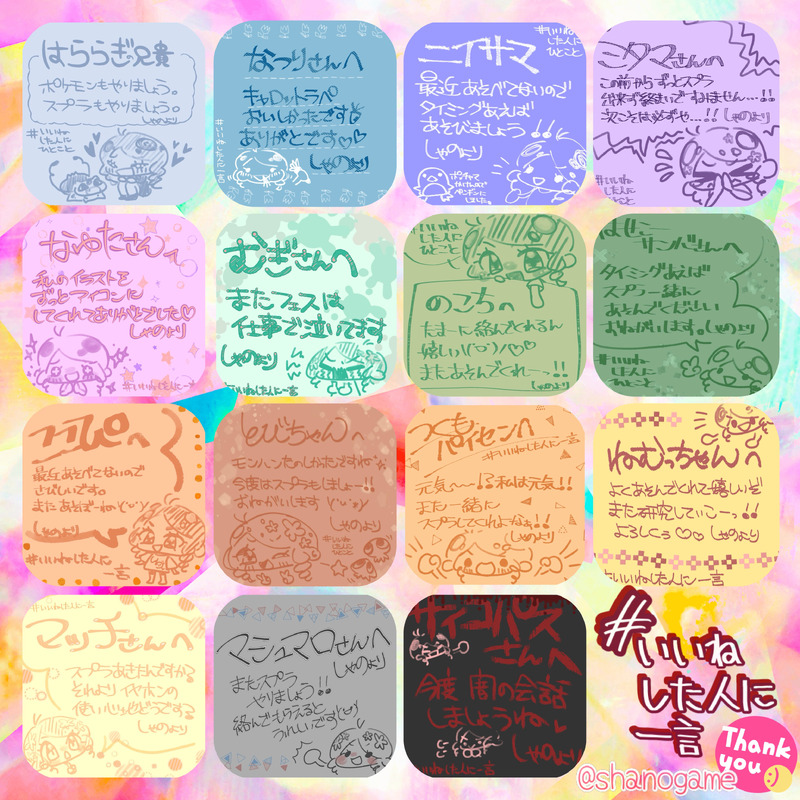 はららぎ兄貴
ポケモンもやりましょう。
スプラもやりましょう。
しゃのより
#いいね
した人に
ひとこと
なつりさんへ
キャロットラペ
おいしかったです
ありがとです♡♡
しゃのより
#いいねした人にひとこと
ニイサマ
#いいね
した人に
ひとこと
最近あそべてないので
タイミングあえば
あそびましょう!!
しゃのより
ポチャマ
ペンギンに
しました。
ミタマさんへ
この前からずっとスプラ
出来ず終まいでねはません…!!
次こそは必ずや…!! しゃのより
#いいね
した人に
ひとこと
なゆたさんへ
私のイラストを
ずっとアイコンに
してくれてありがとでした♡
しゃのより
#いいねした人に一言
むぎさんへ
またフェスは
仕事で泣いてます
しゃのより
#いいねした人に一言
#いいね
した人に
ひとこと
のこちへ
たまーに絡んでくれるん
嬉しい!('ω')/♡♡
またあそんでくれーっ!!
しゃのより
サンバさんへ
タイミングあえば
スプラ一緒に
あそんでください
おねがいします。しゃのより
#いいね
した人に
ひとこと
最近あそべてないので
さびしいです。
またあそぼーね
しゃのより
#いいねした人に
一言
とびちゃんへ
モンハンたのしかったですね
今度はスプラもしよー!!
おねがいします
しゃのより
#いいね
した人に
ひとこと
つくも
パイセンへ
#いいねした人に一言
元気〜!?私は元気!!
また一緒に
スプラしてくれよなぁ!!
しゃのより
ねむっちゃんへ
よくあそんでくれて嬉しいぞ
また研究していこーっ!!
よろしくぅ♡♡ しゃのより
#いいねした人に一言
#いいねした人に一言
マッチさんへ
スプラあきたんですか?
それよりイヤホンの
使い心地どうです?
しゃのより
マシュマロさんへ
しゃのより
またスプラ
やりましょう!!
絡んでもらえると
うれしいです
#いいねした人に一言
サイコパス
さんへ
今度 闇の会話
しましょうね♡
しゃのより
#いいねした人に一言
#いいね
した人に
一言
Thank
you
@shanogame